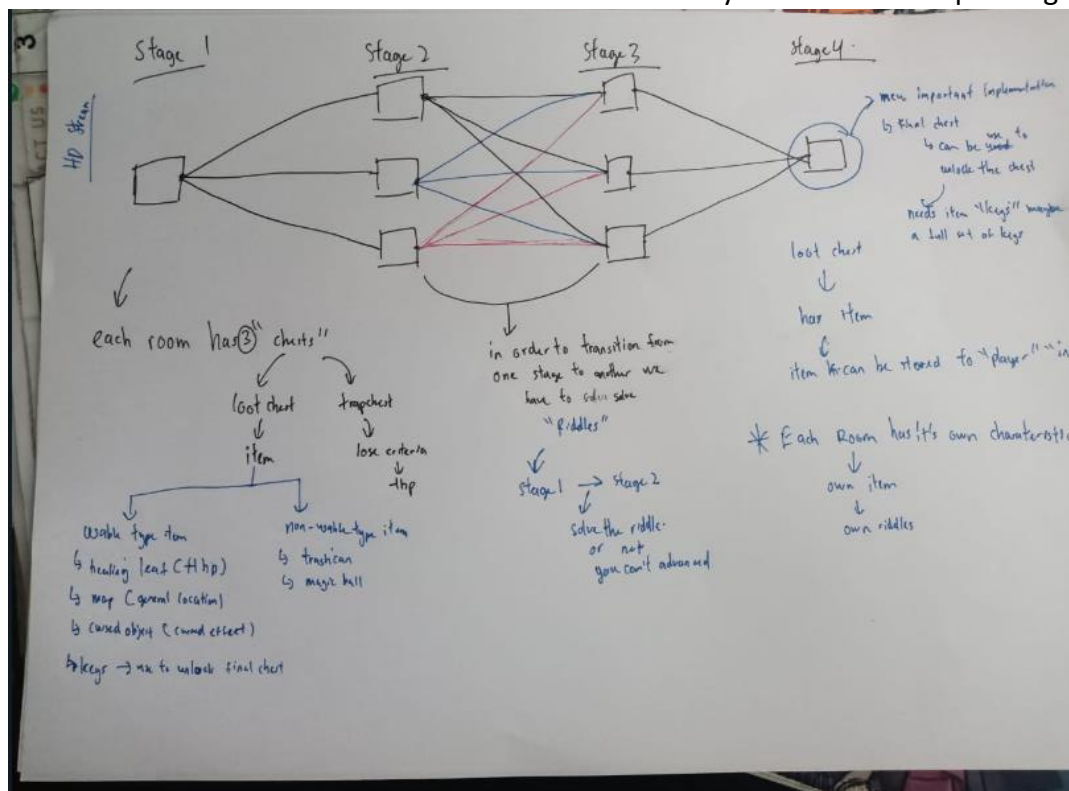 3
ACT US
HD Stream
Stage 1
Stage 2
Stage 3
Stage 4.
new important Implementation
↳ final chest
↳ can be use to
unlock the chest
needs item "keys" maybe
a full set of keys
loot chest
↓
has item
↓
item can be stored to "player" "in
* Each Room has it's own charateristic
↓
own item
↓
own riddles
each room has 3 "chests"
loot chest
trapchest
↓
item
lose criteria
↓
-hp
usable type item
↳ healing leaf (+hp)
↳ map (general location)
↳ cursed object (cursed effect)
↳ keys → use to unlock final chest
non-usable type item
↳ trashcan
↳ magic ball
in order to transition from
one stage to another we
have to solve
"riddles"
stage 1 → stage 2
solve the riddle.
or not
you can't advanced